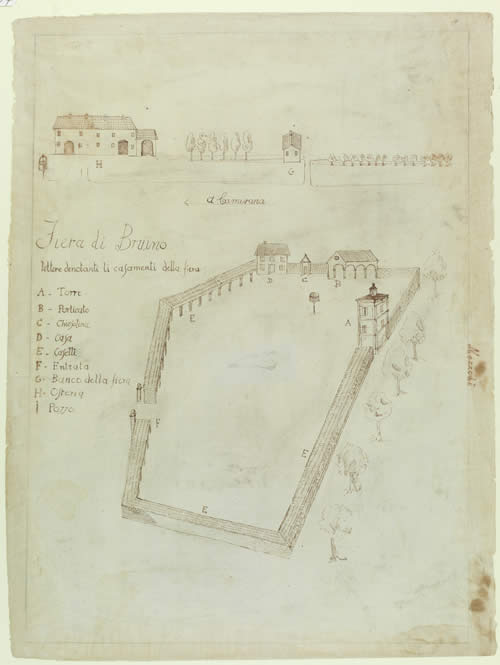 H
G
A Camurana
Fiera di Bruino
lettere denotanti li casamenti della fiera
A - Torre
B - Porticato
C - Chiesolina
D - Casa
E - Casetti
F - Entrata
G - Banco della fiera
H - Osteria
I Pozzo
D
C
B
E
A
F
E
E